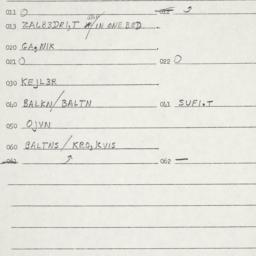 011 O 012 2
013 ZALB3DRI,T w/IN ONE BED
020 GA,NIK
021 O 022 O
030 KEJL3R
040 BALKN/BALTN 041 SUFI.T
050 OJVN
060 BALTNS/KRO,KVIS
061 062 —